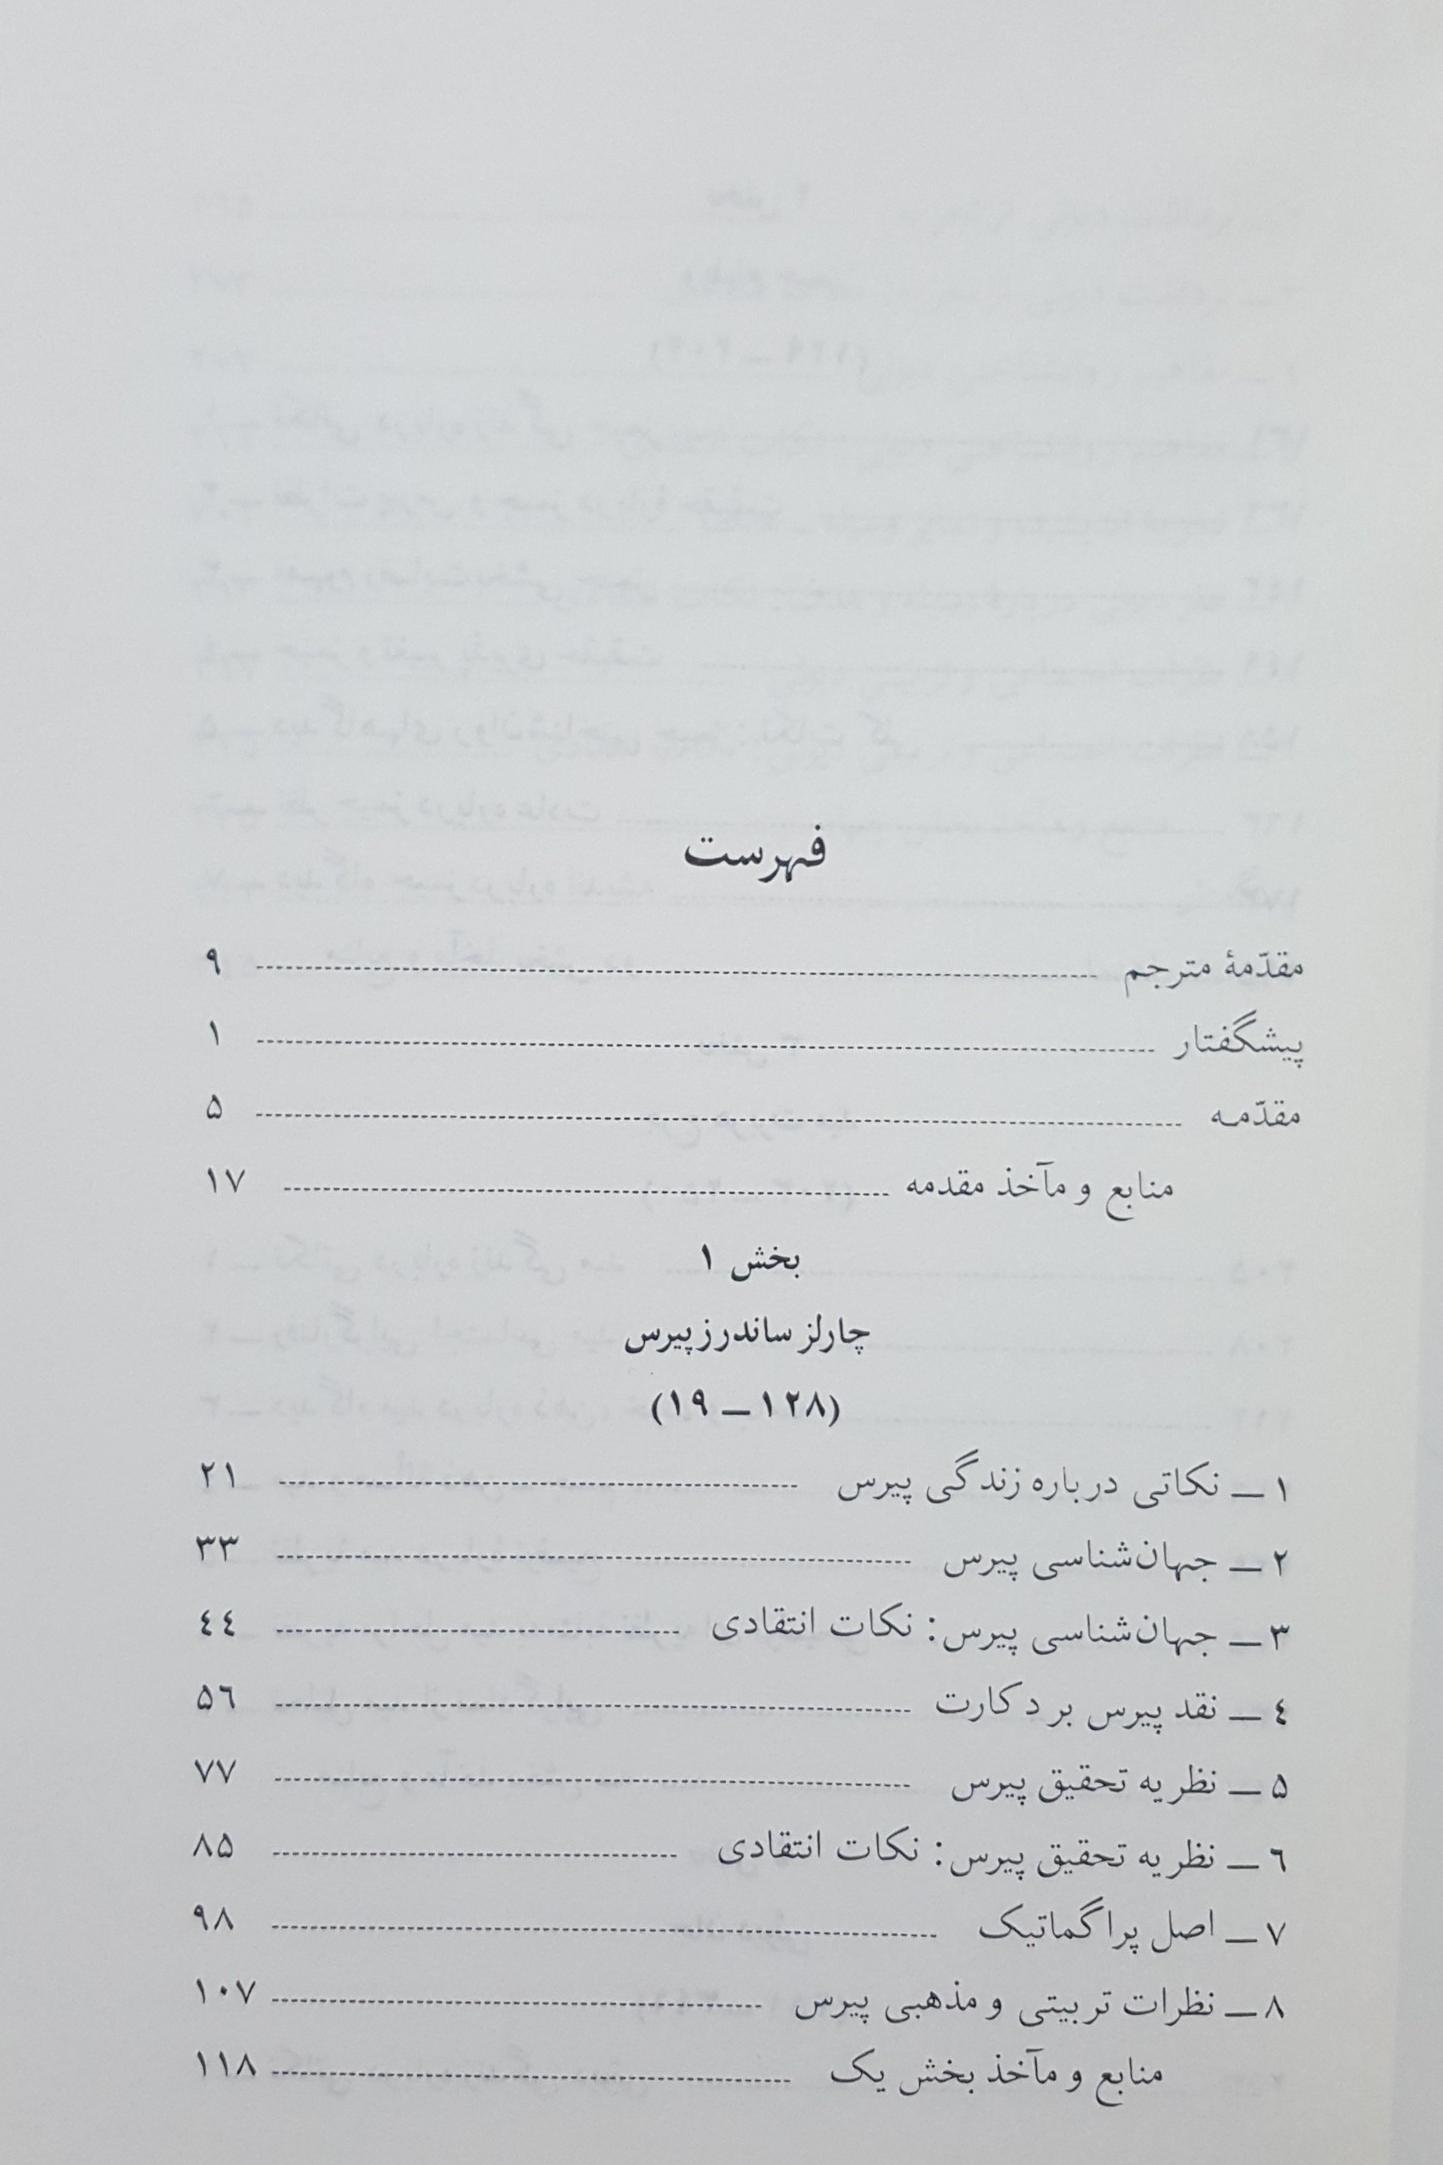 فهرست
مقدّمهٔ مترجم ۹
پیشگفتار ۱
مقدّمه ۵
منابع و مآخذ مقدمه ۱۷
بخش ۱
چارلز ساندرز پیرس
(۱۹ ـ ۱۲۸)
۱ ـ نکاتی درباره زندگی پیرس ۲۱
۲ ـ جهان‌شناسی پیرس ۳۳
۳ ـ جهان‌شناسی پیرس: نکات انتقادی ٤٤
٤ ـ نقد پیرس بر دکارت ۵٦
۵ ـ نظریه تحقیق پیرس ۷۷
٦ ـ نظریه تحقیق پیرس: نکات انتقادی ۸۵
۷ ـ اصل پراگماتیک ۹۸
۸ ـ نظرات تربیتی و مذهبی پیرس ۱۰۷
منابع و مآخذ بخش یک ۱۱۸